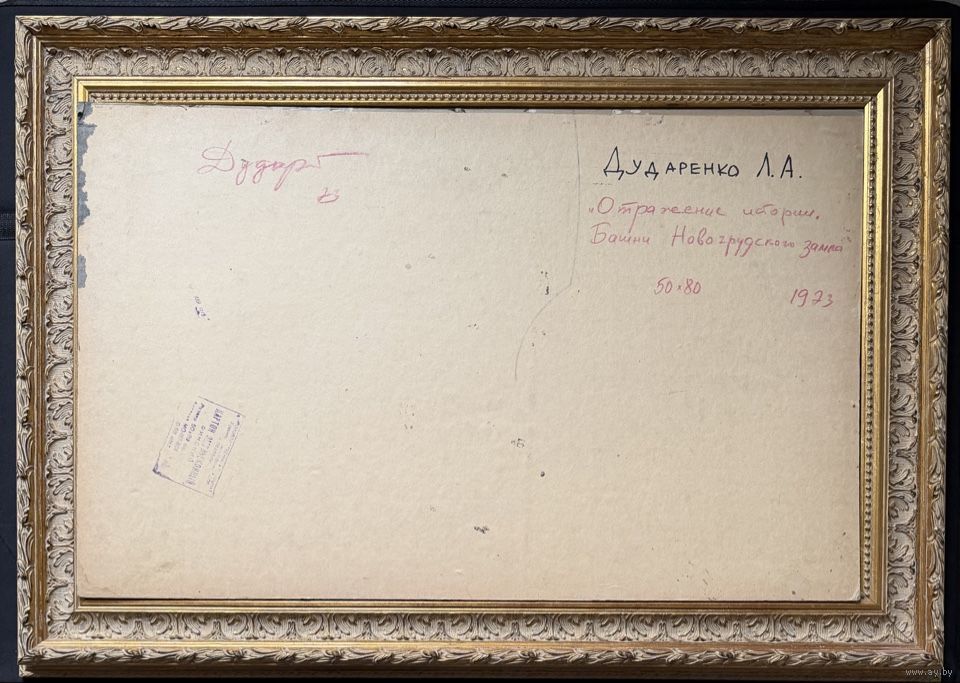 Дудар
73
Дударенко Л.А.
„Отражение истории.
Башни Новогрудского замка"
50×80
1973
КАРТОН
www.ay.by